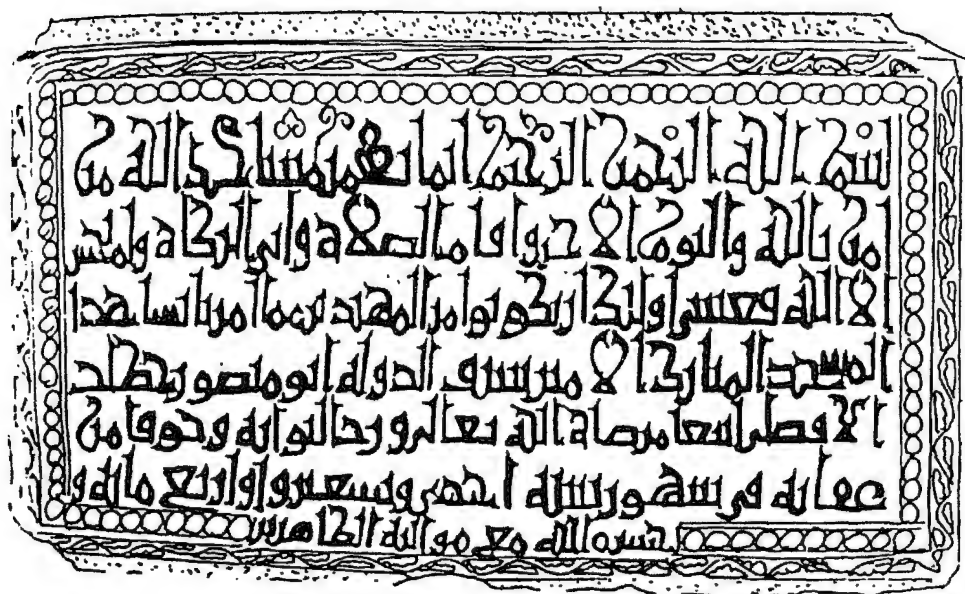 بسم الله الرحمن الرحيم انما يعمر مساجد الله من
امن بالله واليوم الاخر واقام الصلاة واتى الزكاة ولم يخش
الا الله فعسى اولئك ان يكونوا من المهتدين مما امر بانشا هذا
المسجد المبارك الامير شرف الدولة ابو منصور
الافضلي ابتغا مرضاة الله تعالى ورجا ثوابه وخوفا من
عقابه في شهور سنة وتسعين واربع مايه و
حشره الله مع مواليه الطاهرين